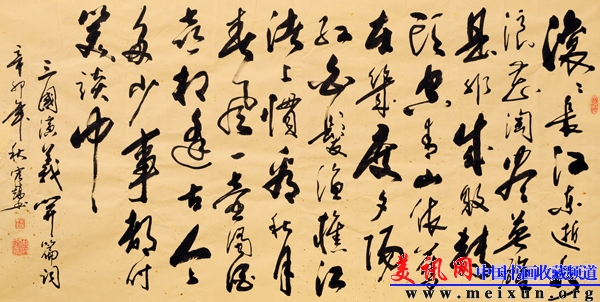 滚〻長江东逝水
浪花淘尽英雄
是非成敗轉
頭空青山依舊
在幾度夕陽
红白髮渔樵江
渚上惯看秋月
春风一壺濁酒
喜相逢古今
多少事都付
笑談中
三國演義開篇詞
辛卯年秋
美讯网 中国书画收藏频道
www.meixun.org